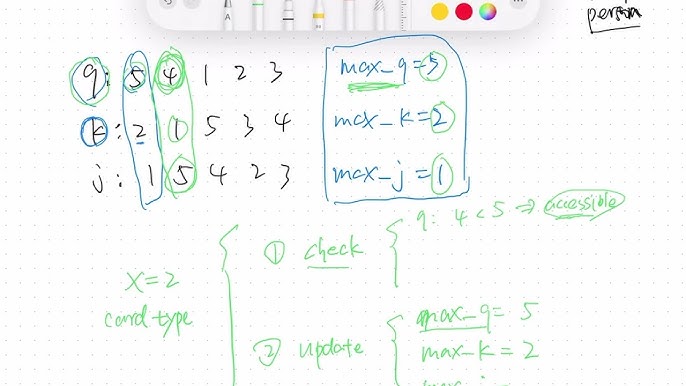 person
q: 5 4 1 2 3
max_q=5
k: 2 1 5 3 4
max_k=2
j: 1 5 4 2 3
max_j=1
q: 4<5 → accessible
① check
x=2
card type
② update
max_q=5
max_k=2